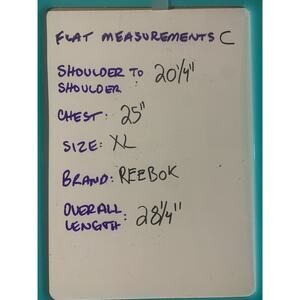 FLAT MEASUREMENTS C
SHOULDER TO 20 1/4"
SHOULDER
CHEST: 25"
SIZE: XL
BRAND: REEBOK
OVERALL
LENGTH: 28 1/4"